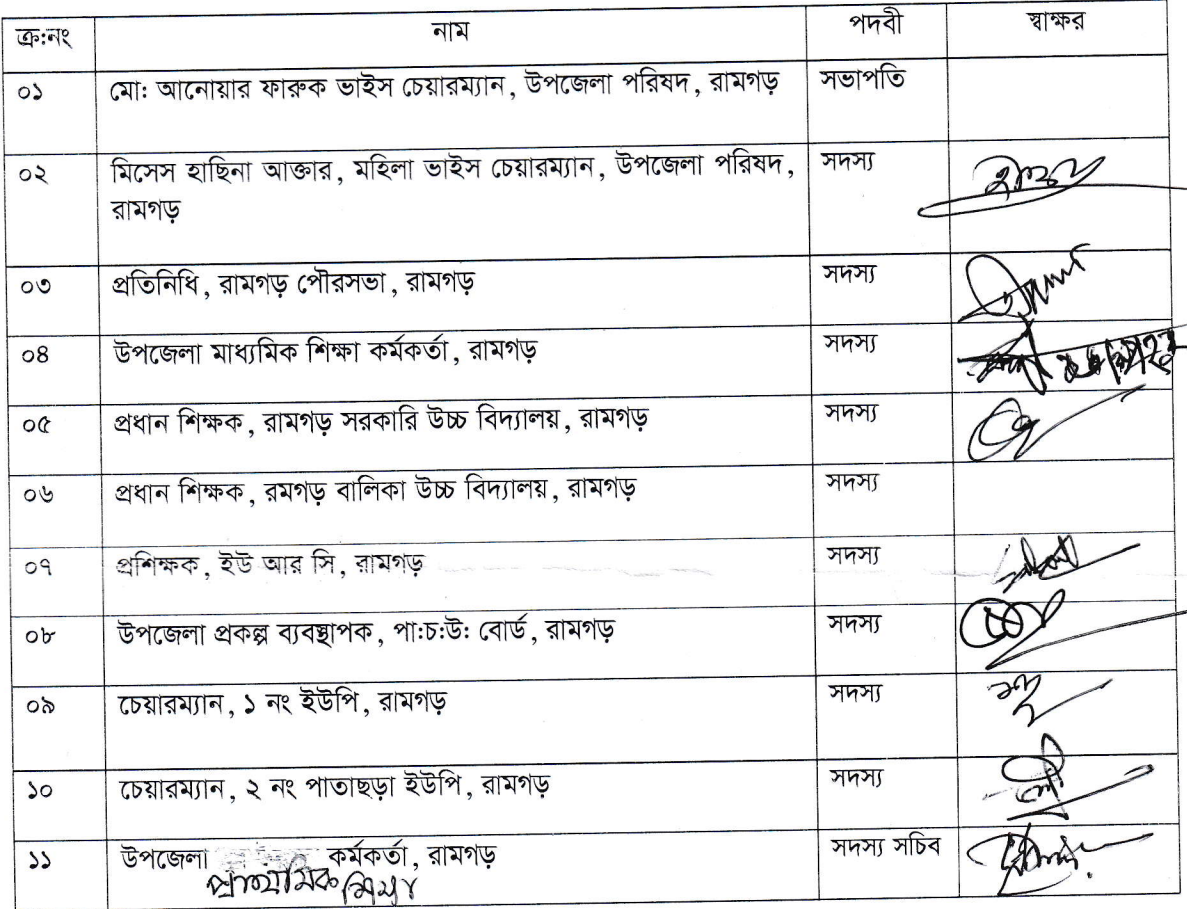 ক্র:নং নাম পদবী স্বাক্ষর
০১ মো: আনোয়ার ফারুক ভাইস চেয়ারম্যান, উপজেলা পরিষদ, রামগড় সভাপতি
০২ মিসেস হাছিনা আক্তার, মহিলা ভাইস চেয়ারম্যান, উপজেলা পরিষদ, সদস্য
রামগড়
০৩ প্রতিনিধি, রামগড় পৌরসভা, রামগড় সদস্য
০৪ উপজেলা মাধ্যমিক শিক্ষা কর্মকর্তা, রামগড় সদস্য
০৫ প্রধান শিক্ষক, রামগড় সরকারি উচ্চ বিদ্যালয়, রামগড় সদস্য
০৬ প্রধান শিক্ষক, রমগড় বালিকা উচ্চ বিদ্যালয়, রামগড় সদস্য
০৭ প্রশিক্ষক, ইউ আর সি, রামগড় সদস্য
০৮ উপজেলা প্রকল্প ব্যবস্থাপক, পা:চ:উ: বোর্ড, রামগড় সদস্য
০৯ চেয়ারম্যান, ১ নং ইউপি, রামগড় সদস্য
১০ চেয়ারম্যান, ২ নং পাতাছড়া ইউপি, রামগড় সদস্য
১১ উপজেলা কর্মকর্তা, রামগড় সদস্য সচিব
প্রাথমিক শিক্ষা